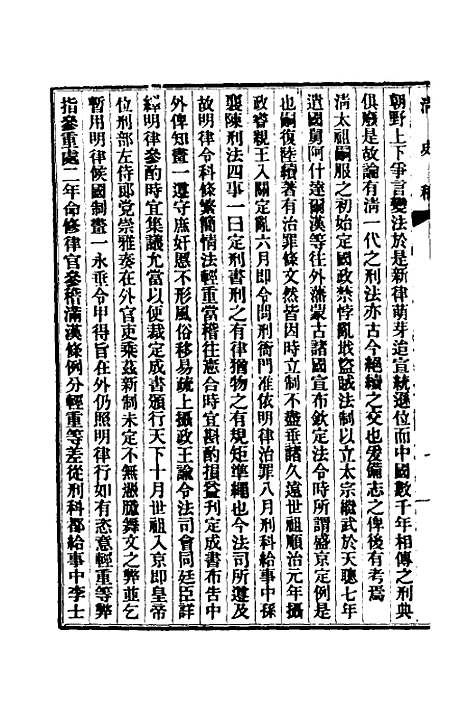 清史稿
朝野上下爭言變法於是新律萌芽迨宣統遜位而中國數千年相傳之刑典
俱廢是故論有淸一代之刑法亦古今絕續之交也爰備志之俾後有考焉
淸太祖嗣服之初始定國政禁悖亂戢盜賊法制以立太宗繼武於天聰七年
遣國舅阿什達爾漢等往外藩蒙古諸國宣布欽定法令時所謂盛京定例是
也嗣復陸續著有治罪條文然皆因時立制不盡垂諸久遠世祖順治元年攝
政睿親王入關定亂六月卽令問刑衙門准依明律治罪八月刑科給事中孫
襄陳刑法四事一曰定刑書刑之有律猶物之有規矩準繩也今法司所遵及
故明律令科條繁簡情法輕重當稽往憲合時宜斟酌損益刊定成書布告中
外俾知畫一遵守庶奸慝不形風俗移易疏上攝政王諭令法司會同廷臣詳
繹明律參酌時宜集議允當以便裁定成書頒行天下十月世祖入京卽皇帝
位刑部左侍郎党崇雅奏在外官吏乘茲新制未定不無憑臆舞文之弊並乞
暫用明律候國制畫一永垂令甲得旨在外仍照明律行如有恣意輕重等弊
指參重處二年命修律官參稽滿漢條例分輕重等差從刑科都給事中李士